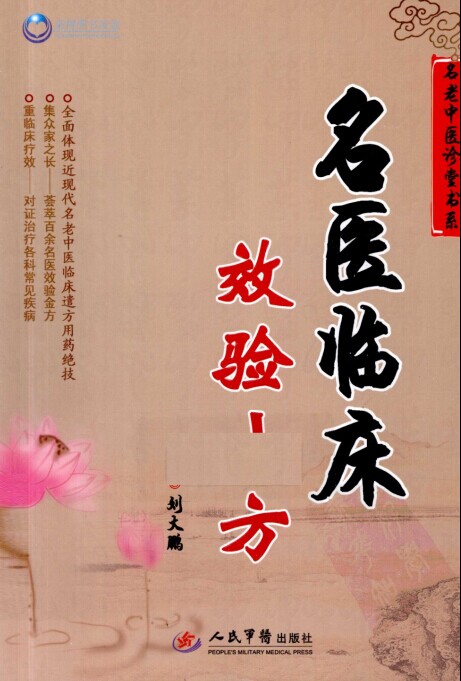 名老中医诊堂书系
名医临床
效验
方
刘大鹏
全面体现近现代名老中医临床遣方用药绝技
集众家之长——荟萃百余名医效验金方
重临床疗效——对证治疗各科常见疾病
人民军医出版社
PEOPLE'S MILITARY MEDICAL PRESS